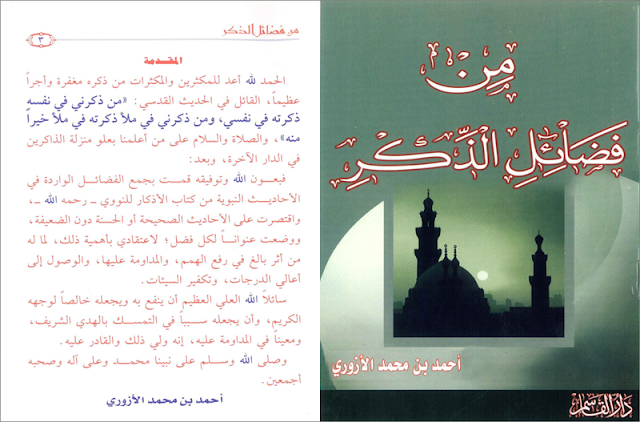 من فضائل الذكر
٣
المقدمة
الحمد لله أعد للمكثرين والمكثرات من ذكره مغفرة وأجراً
عظيماً، القائل في الحديث القدسي: «من ذكرني في نفسه
ذكرته في نفسي، ومن ذكرني في ملأ ذكرته في ملأ خيراً
منه»، والصلاة والسلام على من أعلمنا بعلو منزلة الذاكرين
في الدار الآخرة، وبعد:
فبعون الله وتوفيقه قمت بجمع الفضائل الواردة في
الأحاديث النبوية من كتاب الأذكار للنووي - رحمه الله -،
واقتصرت على الأحاديث الصحيحة أو الحسنة دون الضعيفة،
ووضعت عنواناً لكل فضل؛ لاعتقادي بأهمية ذلك، لما له
من أثر بالغ في رفع الهمم، والمداومة عليها، والوصول إلى
أعالي الدرجات، وتكفير السيئات.
سائلاً الله العلي العظيم أن ينفع به ويجعله خالصاً لوجهه
الكريم، وأن يجعله سبباً في التمسك بالهدي الشريف،
ومعيناً في المداومة عليه، إنه ولي ذلك والقادر عليه.
وصلى الله وسلم على نبينا محمد وعلى آله وصحبه
أجمعين.
أحمد بن محمد الأزوري
مِنْ
فَضَائِلِ الذِّكْرِ
أحمد بن محمد الأزوري
دار القاسم